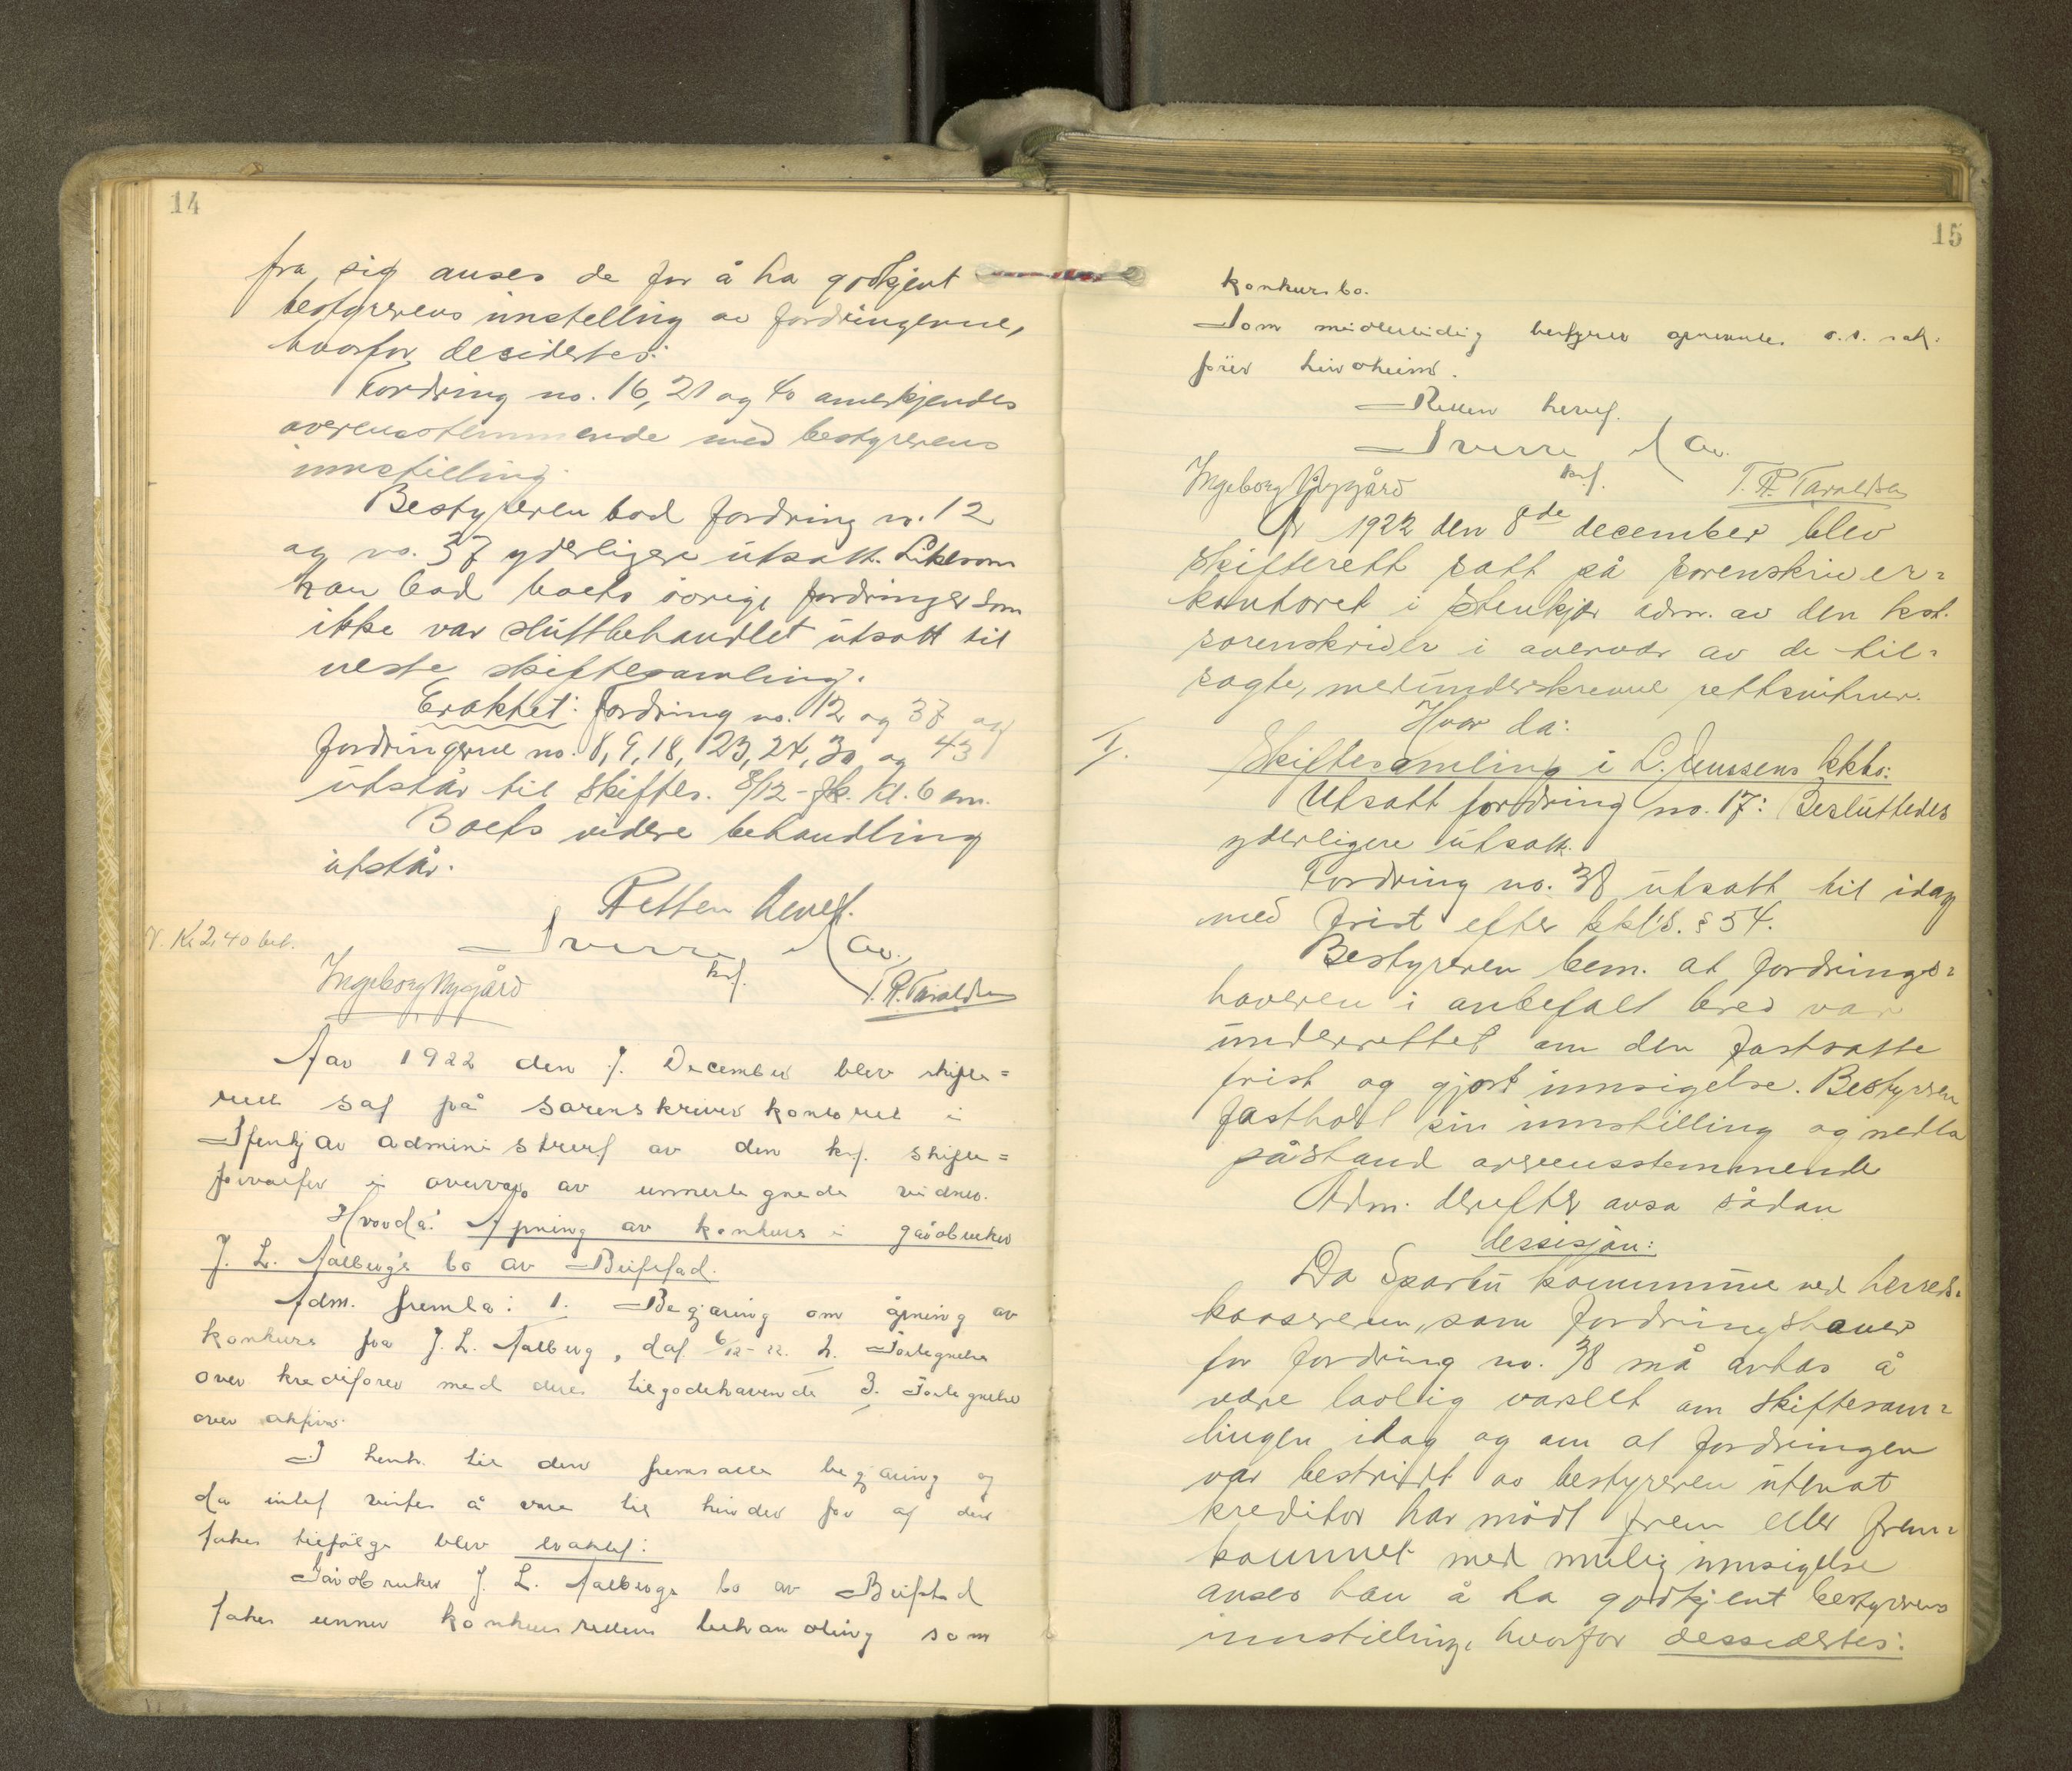 14
fra sig anses de for å ha godkjent
bestyrerens innstelling av fordringerne,
hvorfor desidertes:
Fordring no. 16, 21 og 40 anerkjendes
overensstemmende med bestyrerens
innstilling.
Bestyreren bad fordring no. 12
og no. 37 yderligere utsatt. Likesom
han bad boets övrige fordringer som
ikke var sluttbehandlet utsatt til
neste skiftesamling.
Eraktet: Fordring no. 12 og 37 og
fordringerne no. 8, 9, 18, 23, 24, 30 og 43
utstår til skiftes. 8/12 - fk. kl. 6 em.
Boets videre behandling
utstår.
Retten hevet.
V. Kr 2,40 bet.
Sverre
kst.
Ingeborg Nygård
T. R. Taraldsen
Aar 1922 den 7. December blev skifte=
rett sat på sorenskriverkontoret i
Stenkjær administrert av den kst. skifte=
forvalter i overvær av unnertegnede vidner.
Hvorda: Åpning av konkurs i gårdbruker
J. L. Aalberg's bo av Beitstad.
Adm. fremla: 1. Begjæring om åpning av
konkurs fra J. L. Aalberg, dat. 6/12-22. 2. Fortegnelse
over kreditorer med deres tilgodehavende 3. Fortegnelse
over aktiva.
I henh. til den fremsatte begjæring og
da intet vistes å være til hinder for at den
tokes tilfölge blev eraktet:
Gårdbruker J. L. Aalbergs bo av Beitstad
tokes unner konkursrettens behandling som
15
konkursbo.
Som midlertidig bestyrer opnevntes o.r. sak-
förer
Retten hevet.
Sverre
kst.
Ingeborg Nygård
T. R. Taraldsen
År 1922 den 8de december blev
skifterett satt på sorenskriver=
kontoret i Stenkjær adm. av den kst.
sorenskriver i overvær av de til=
sagte, medunderskrevne rettsvitner.
Hvor da:
I.
Skiftesamling i L. Jenssens kkbo:
Utsatt fordring no. 17: Besluttedes
yderligere utsatt.
Fordring no. 38 utsatt til idag
med frist efter kkl's. § 54.
Bestyreren bem. at fordrings=
haveren i anbefalt brev var
underrettet om den fastsatte
frist og gjort innsigelse. Bestyreren
fastholdt sin innstilling og nedla
påstand overensstemmende
Adm. derefter avsa sådan
dessisjon:
Da Sparbu kommune ved herreds=
kassereren, som fordringshaver
for fordring no. 38 må antas å
være lovlig varslet om skiftesam=
lingen idag og om at fordringen
var bestridt av bestyreren uten at
kreditor har mödt frem eller frem=
kommet med mulig innsigelse
anses han å ha godkjent bestyrerens
innstilling, hvorfor dessidertes: